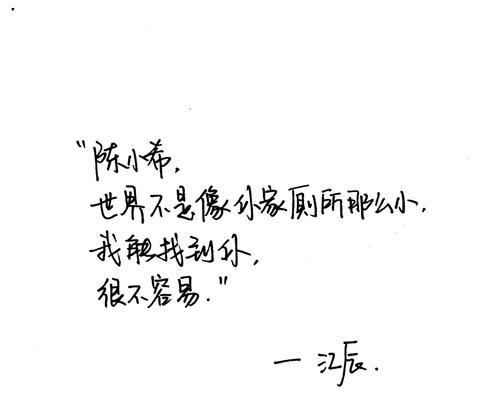 “陈小希,
世界不是像你家厕所那么小,
我能找到你,
很不容易.”
— 江辰.